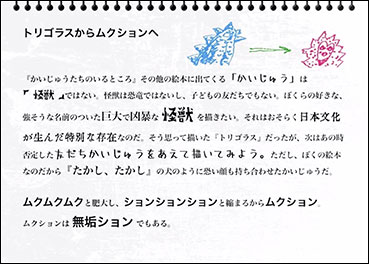 トリゴラスからムクションへ
『かいじゅうたちのいるところ』その他の絵本に出てくる「かいじゅう」は
「怪獣」ではない。怪獣は恐竜ではないし、子どもの友だちでもない。ぼくらの好きな、
強そうな名前のついた巨大で凶暴な 怪獣 を描きたい。それはおそらく日本文化
が生んだ特別な存在なのだ。そう思って描いた『トリゴラス』だったが、次はあの時
否定した友だちかいじゅうをあえて描いてみよう。ただし、ぼくの絵本
なのだから『たかし、たかし』の犬のように恐い顔も持ち合わせたかいじゅうだ。
ムクムクムクと肥大し、ションションションと縮まるからムクション。
ムクションは 無垢ション でもある。